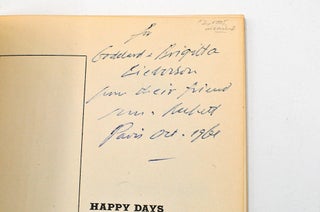 for
Goddard & Brigitta
Lieberson
from their friend
Sam. Beckett
Paris Oct. 1961
HAPPY DAYS